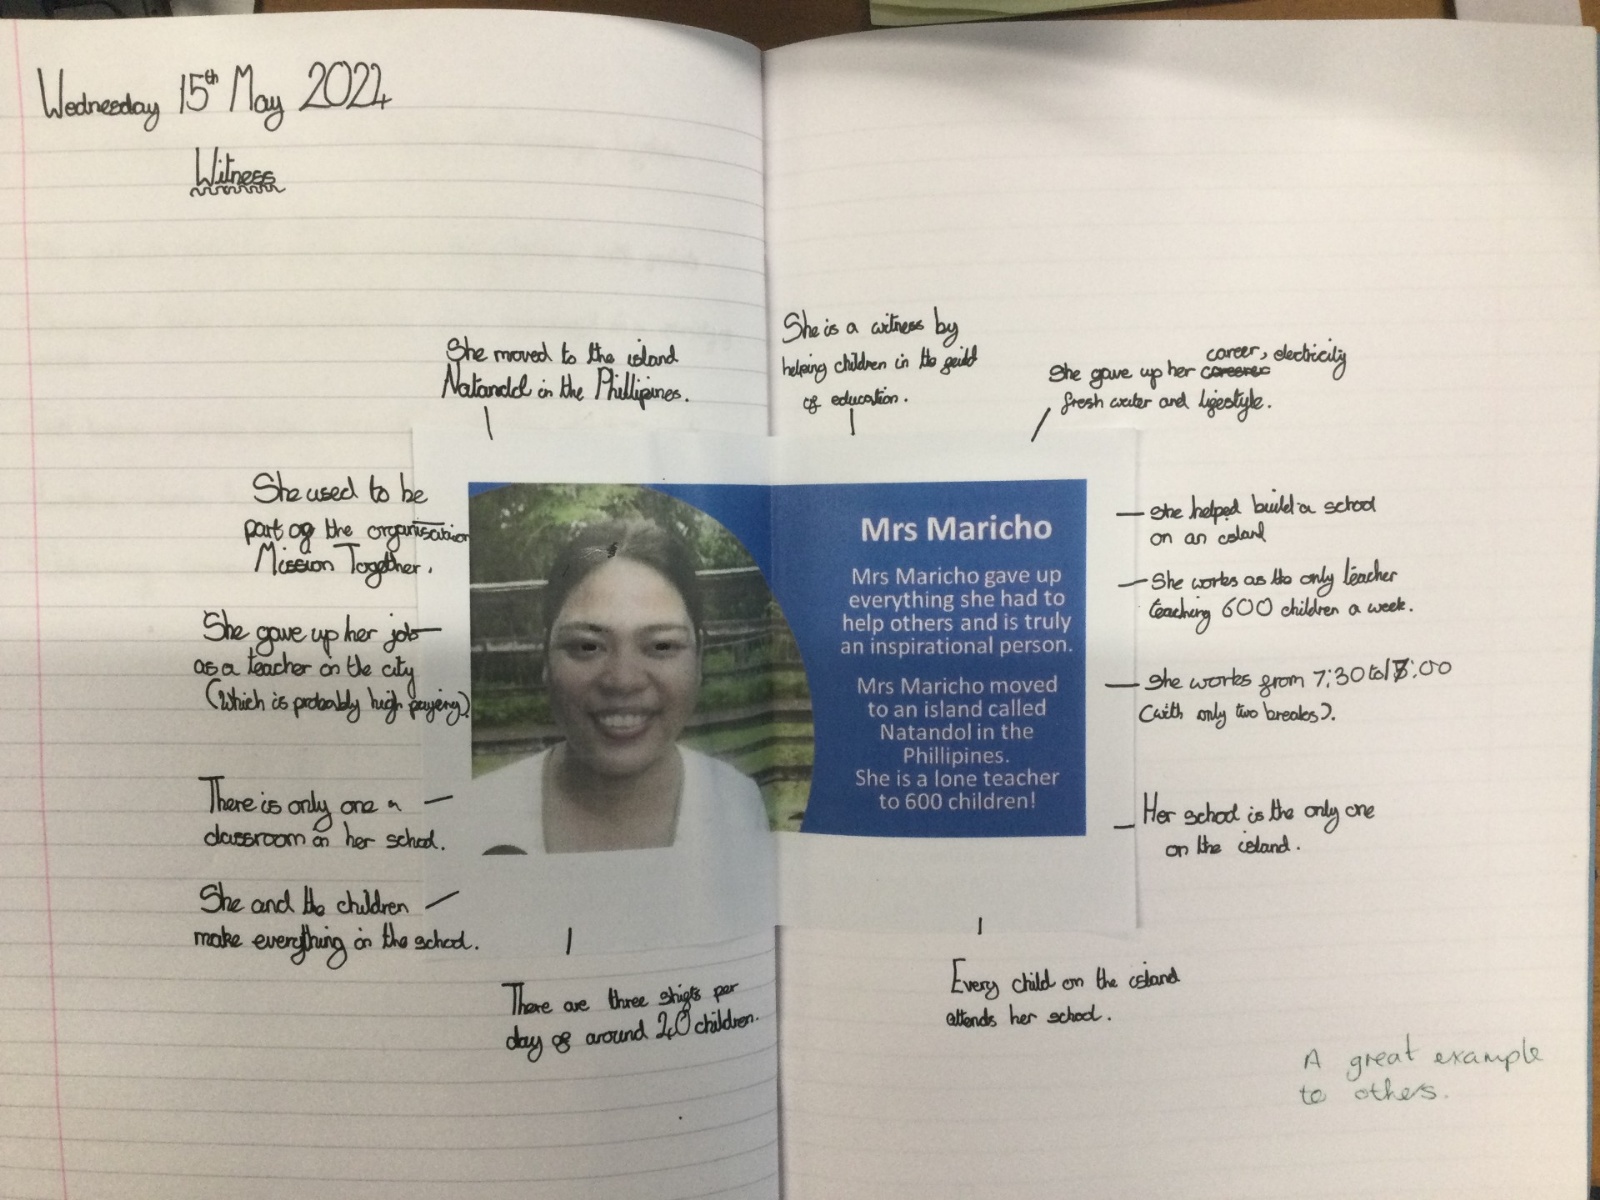 Wednesday 15th May 2024
Witness
She moved to the island
Natandol in the Phillipines.
She is a witness by
helping children in the feild
of education.
career, electricity
She gave up her
fresh water and lifestyle.
She used to be
part of the organisation
Mission Together.
She gave up her job
as a teacher in the city
(Which is probably high paying).
There is only one a
classroom in her school.
She and the children
make everything in the school.
There are three shifts per
day of around 40 children.
Mrs Maricho
Mrs Maricho gave up
everything she had to
help others and is truly
an inspirational person.
Mrs Maricho moved
to an island called
Natandol in the
Phillipines.
She is a lone teacher
to 600 children!
She helped build a school
on an island
She works as the only teacher
teaching 600 children a week.
She works from 7:30 to :00
(with only two breaks).
Her school is the only one
on the island.
Every child on the island
attends her school.
A great example
to others.